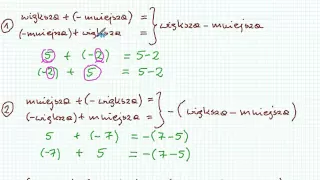 ① większa + (- mniejsza) = } większa - mniejsza
(- mniejsza) + większa =
5 + (-2) = 5-2
(-2) + 5 = 5-2
② mniejsza + (- większa) = } - (większa - mniejsza)
(- większa) + mniejsza =
5 + (-7) = -(7-5)
(-7) + 5 = -(7-5)